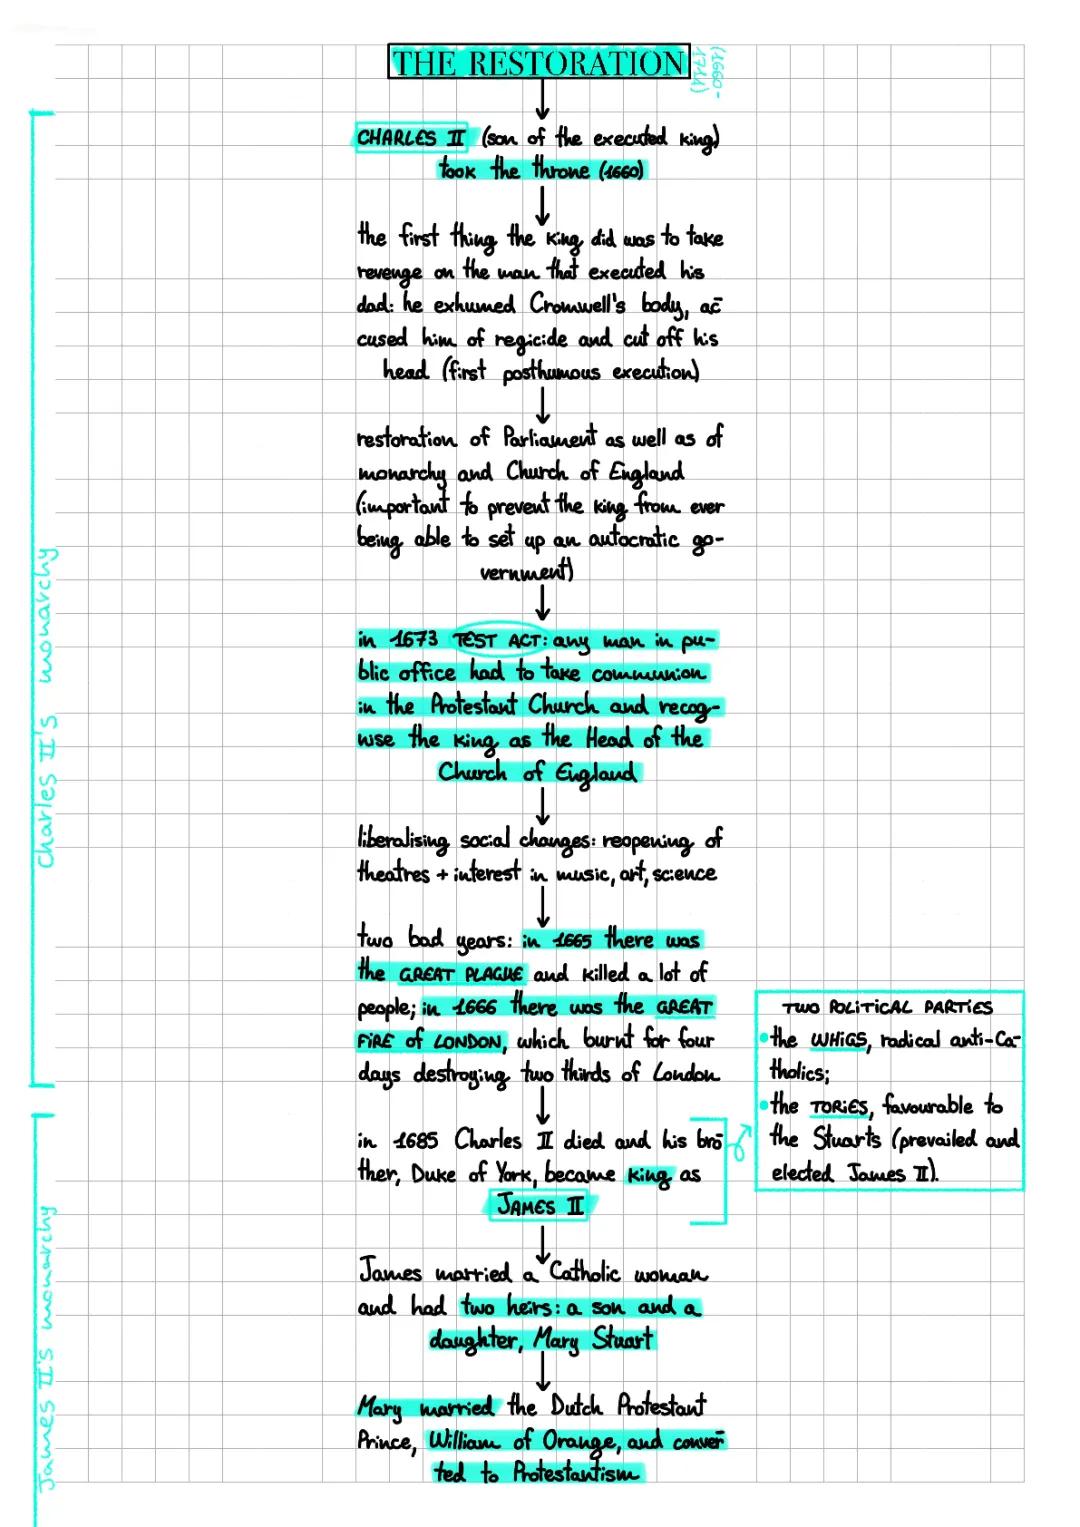 THE RESTORATION
(1660-
1714)
CHARLES II (son of the executed king)
took the throne (1660)
the first thing the king did was to take
revenge on the man that executed his
dad: he exhumed Cromwell's body, ac-
cused him of regicide and cut off his
head (first posthumous execution)
restoration of Parliament as well as of
monarchy and Church of England
(important to prevent the king from ever
being able to set up an autocratic go-
vernment)
in 1673 TEST ACT: any man in pu-
blic office had to take communion
in the Protestant Church and recog-
nise the king as the Head of the
Church of England
liberalising social changes: reopening of
theatres + interest in music, art, science
two bad years: in 1665 there was
the GREAT PLAGUE and killed a lot of
people; in 1666 there was the GREAT
FIRE of LONDON, which burnt for four
days destroying two thirds of London
Charles II's monarchy
in 1685 Charles II died and his bro-
ther, Duke of York, became king as
JAMES II
TWO POLITICAL PARTIES
• the WHIGS, radical anti-Ca-
tholics;
• the TORIES, favourable to
the Stuarts (prevailed and
elected James II).
James married a Catholic woman
and had two heirs: a son and a
daughter, Mary Stuart
Mary married the Dutch Protestant
Prince, William of Orange, and conver-
ted to Protestantism
James II's monarchy